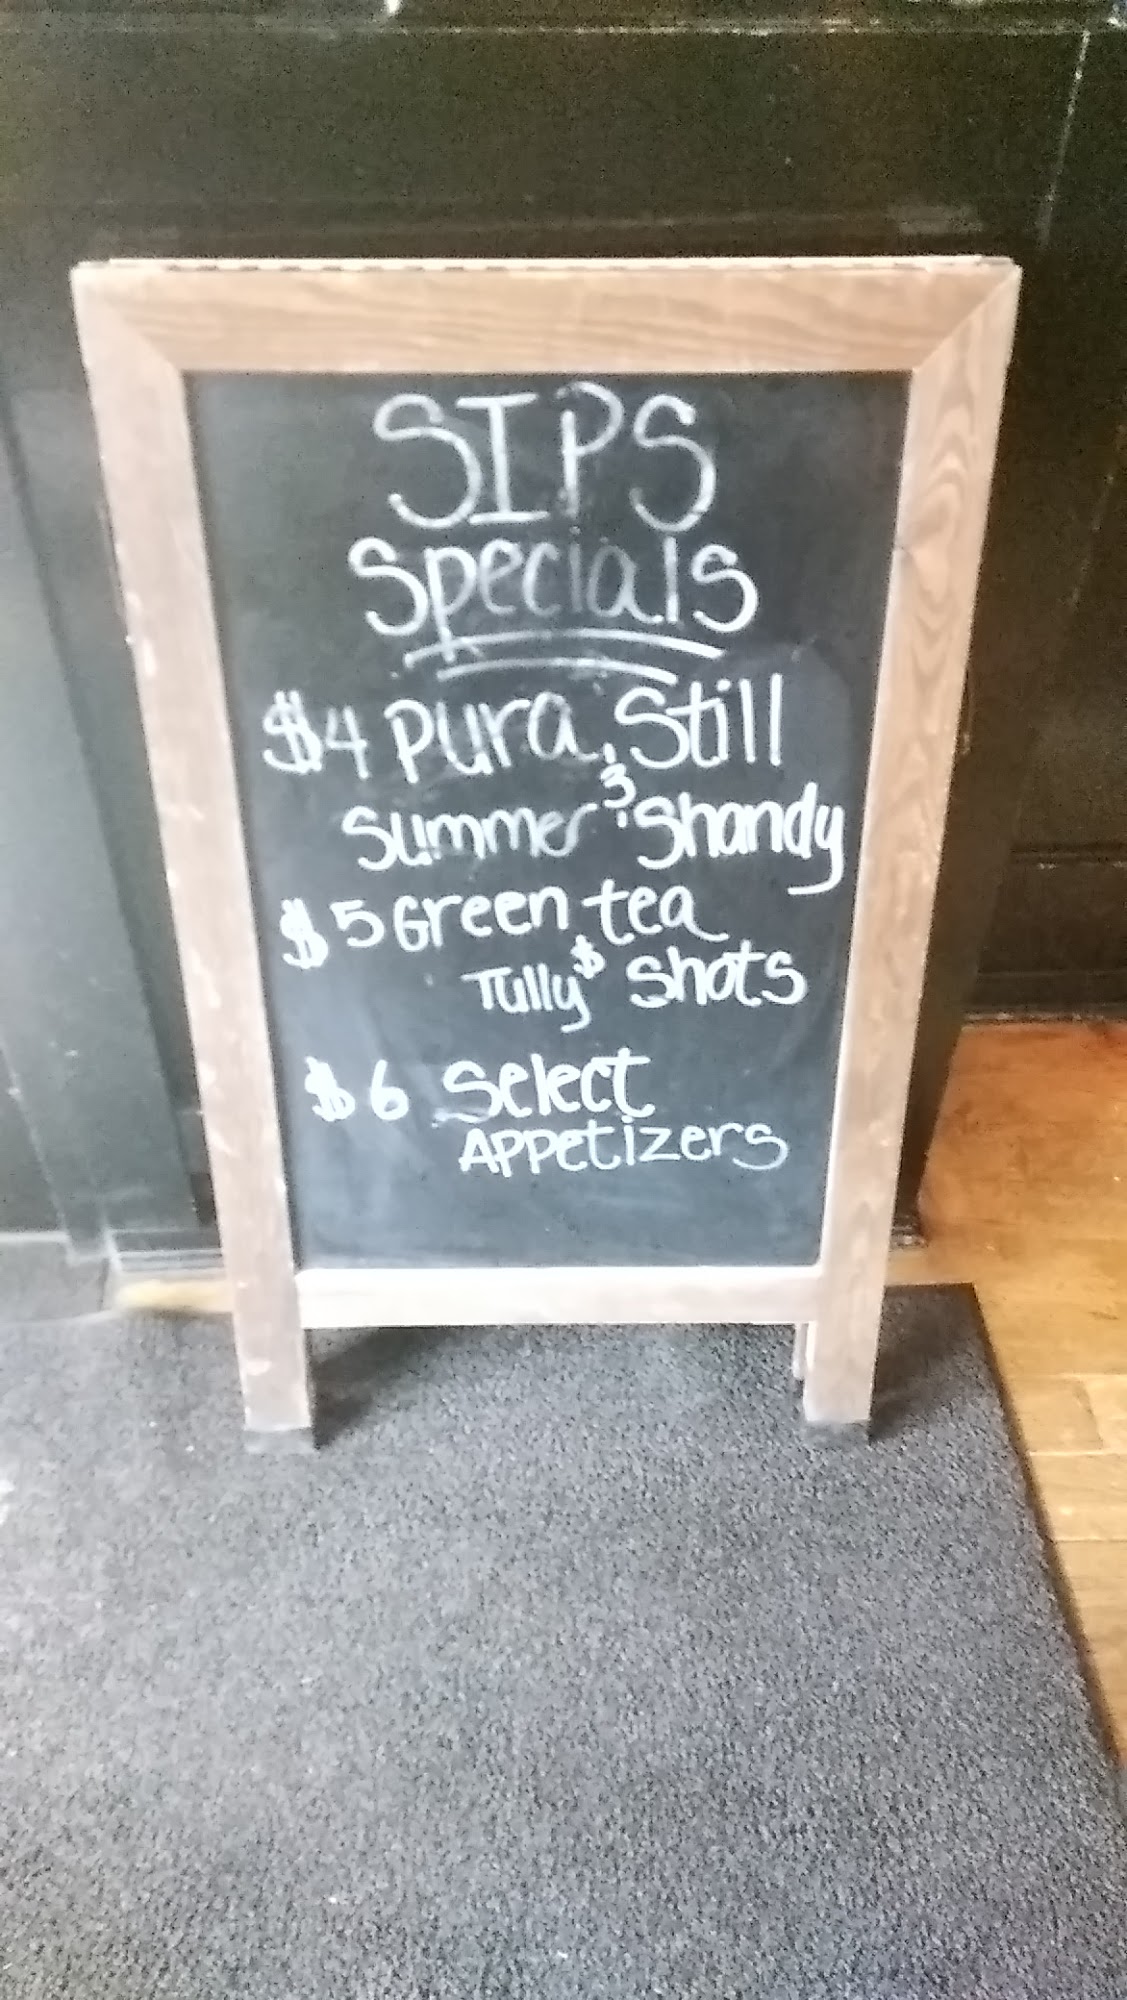 SIPS
Specials
$4 Pura, Still
Summer & Shandy
$5 Green tea
Tully & Shots
$6 Select
Appetizers